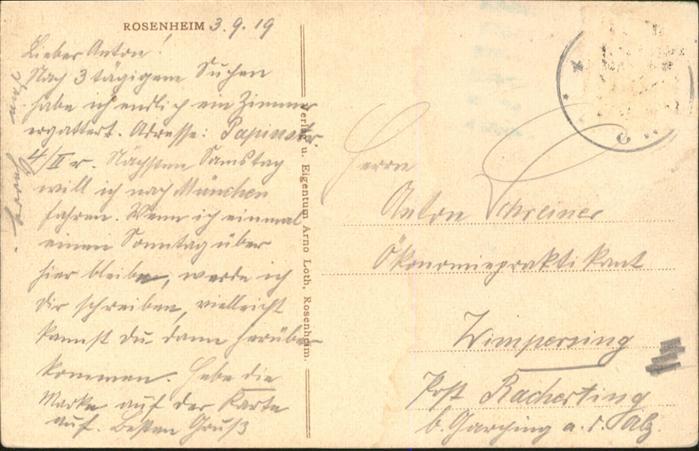 ROSENHEIM 3.9.19
Lieber Anton!
Nach 3 tägigem Suchen
habe ich endlich ein Zimmer
ergattert. Adresse: Papinstr.
4/II r. Nächsten Samstag
will ich nach München
fahren. Wenn ich einmal
einen Sonntag über
hier bleibe, werde ich
dir schreiben, vielleicht
kannst Du dann herüber
kommen. Hebe die
Marke auf der Karte
auf. Besten Gruß
Verlag u. Eigentum Arno Loth, Rosenheim.
Herrn
Anton Schreiner
Ökonomiepraktikant
Wimpersing
Post Racherting
b. Garching a. d. Alz.